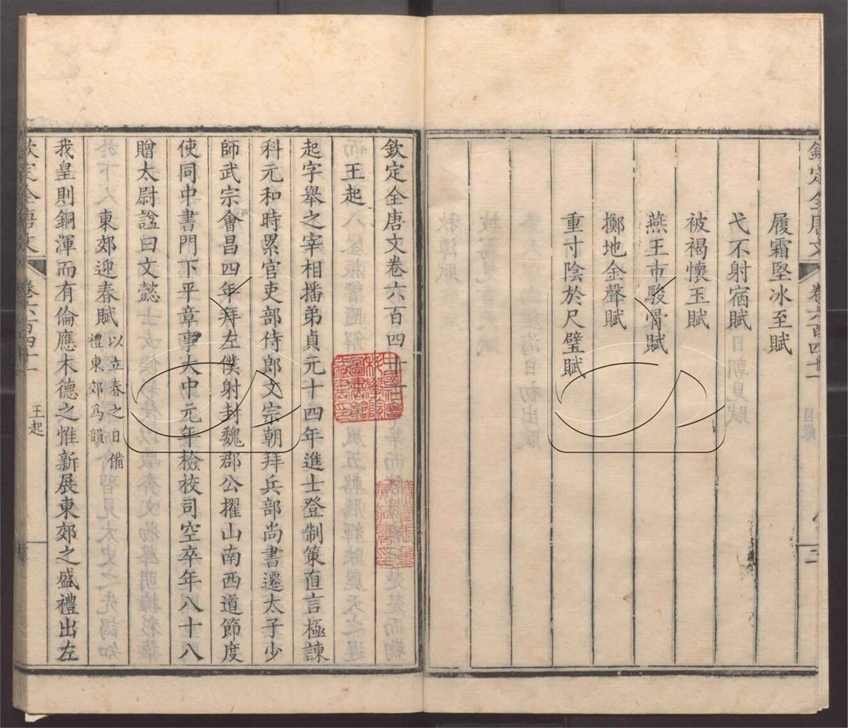 欽定全唐文 卷六百四十一 目錄
履霜堅冰至賦
弋不射宿賦
被褐懷玉賦
燕王市駿骨賦
擲地金聲賦
重寸陰於尺璧賦
欽定全唐文卷六百四十一
王起
起字舉之宰相播弟貞元十四年進士登制策直言極諫
科元和時累官吏部侍郎文宗朝拜兵部尚書遷太子少
師武宗會昌四年拜左僕射封魏郡公擢山南西道節度
使同中書門下平章事大中元年檢校司空卒年八十八
贈太尉諡曰文懿
東郊迎春賦 以立春之日備
禮東郊為韻
我皇則銅渾而有倫應木德之惟新展東郊之盛禮出左
欽定全唐文 卷六百四十一 王起